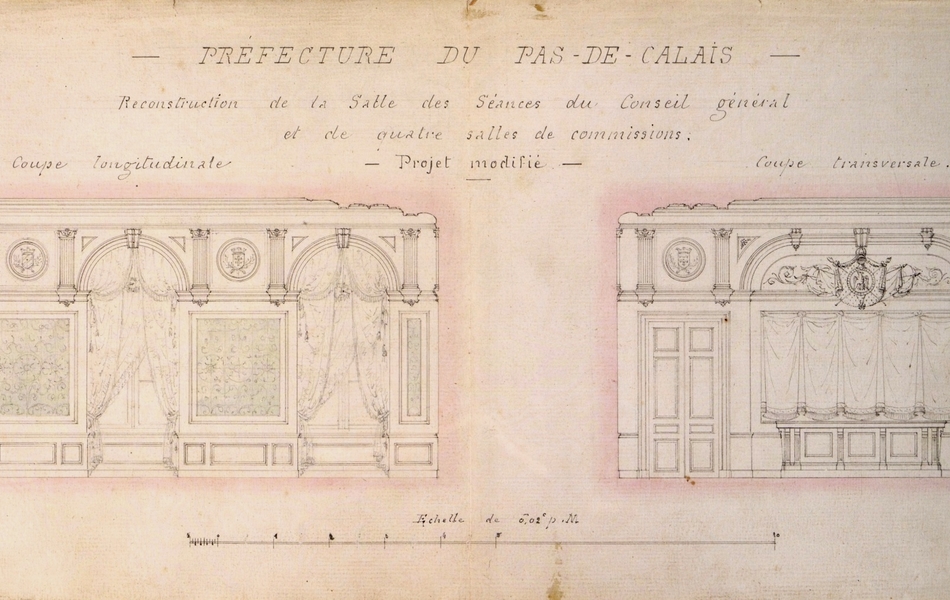 — PRÉFECTURE DU PAS-DE-CALAIS —
Reconstruction de la Salle des Séances du Conseil général
et de quatre salles de commissions.
Coupe longitudinale — Projet modifié — Coupe transversale.
Echelle de 0,02ᶜ p. M.